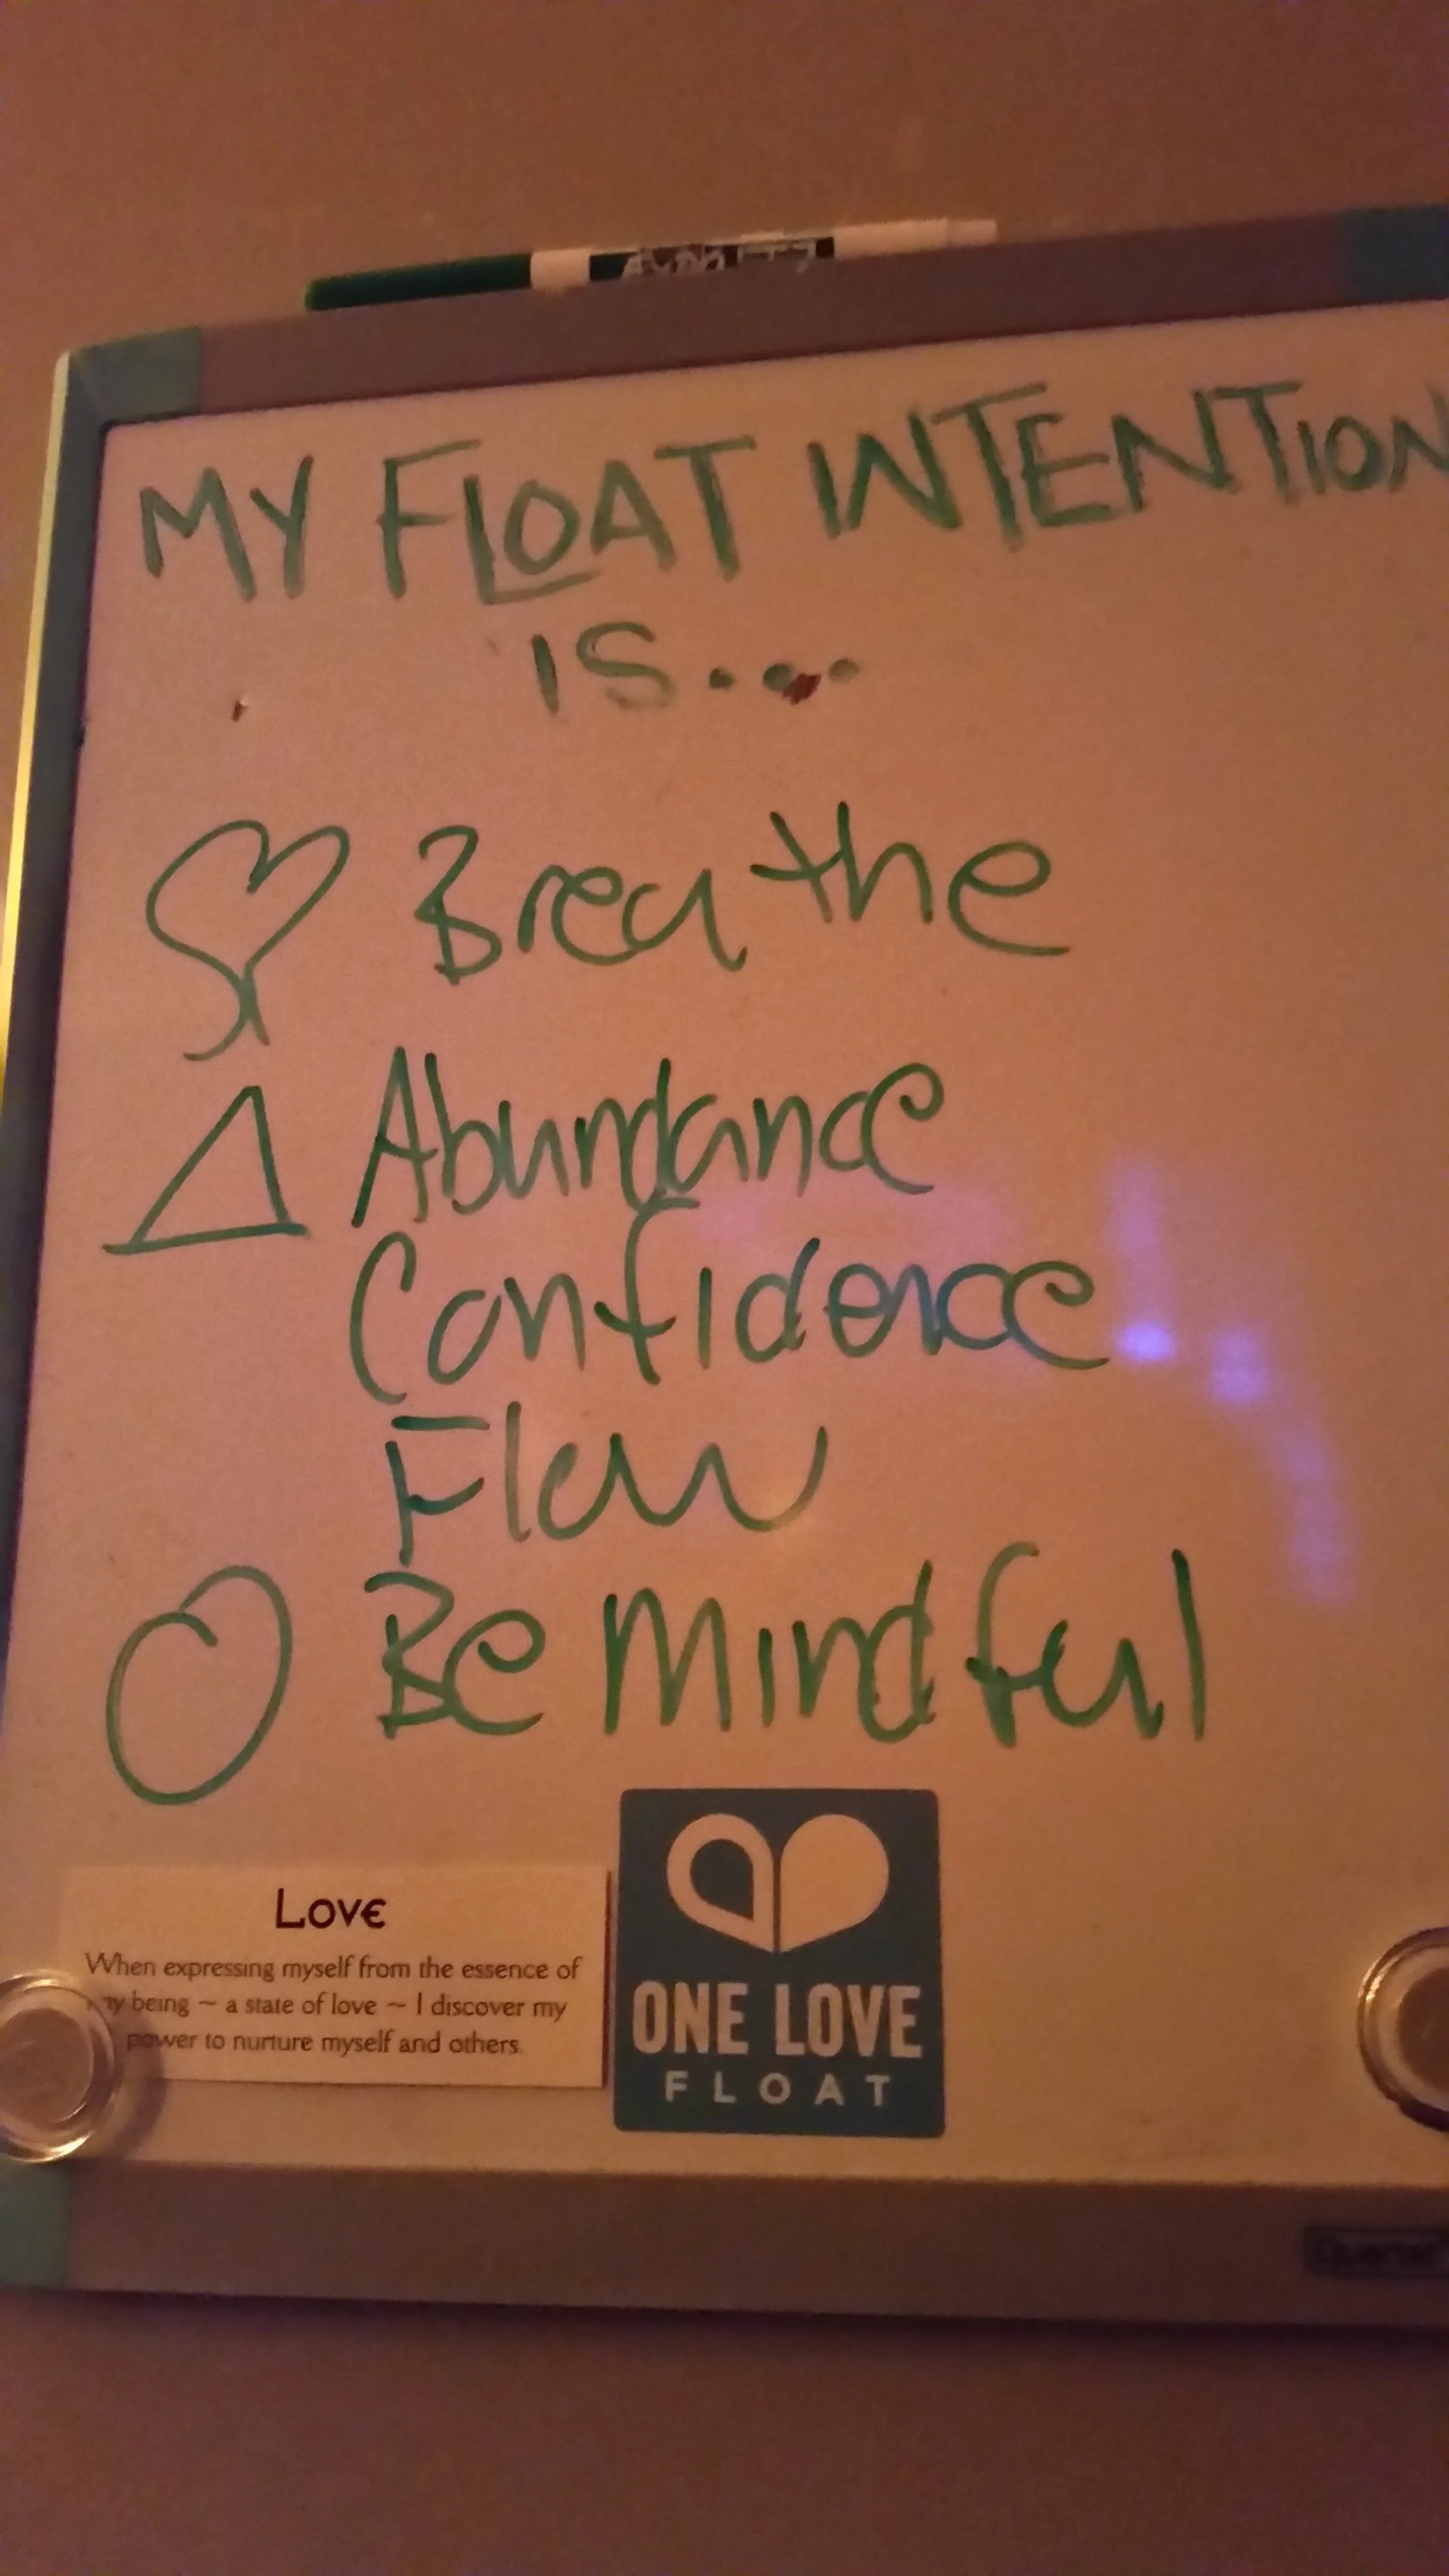 MY FLOAT INTENTION
IS...
Breathe
Abundance
Confidence
Flow
Be Mindful
Love
When expressing myself from the essence of
my being ~ a state of love ~ I discover my
power to nurture myself and others.
ONE LOVE
FLOAT
Quartet